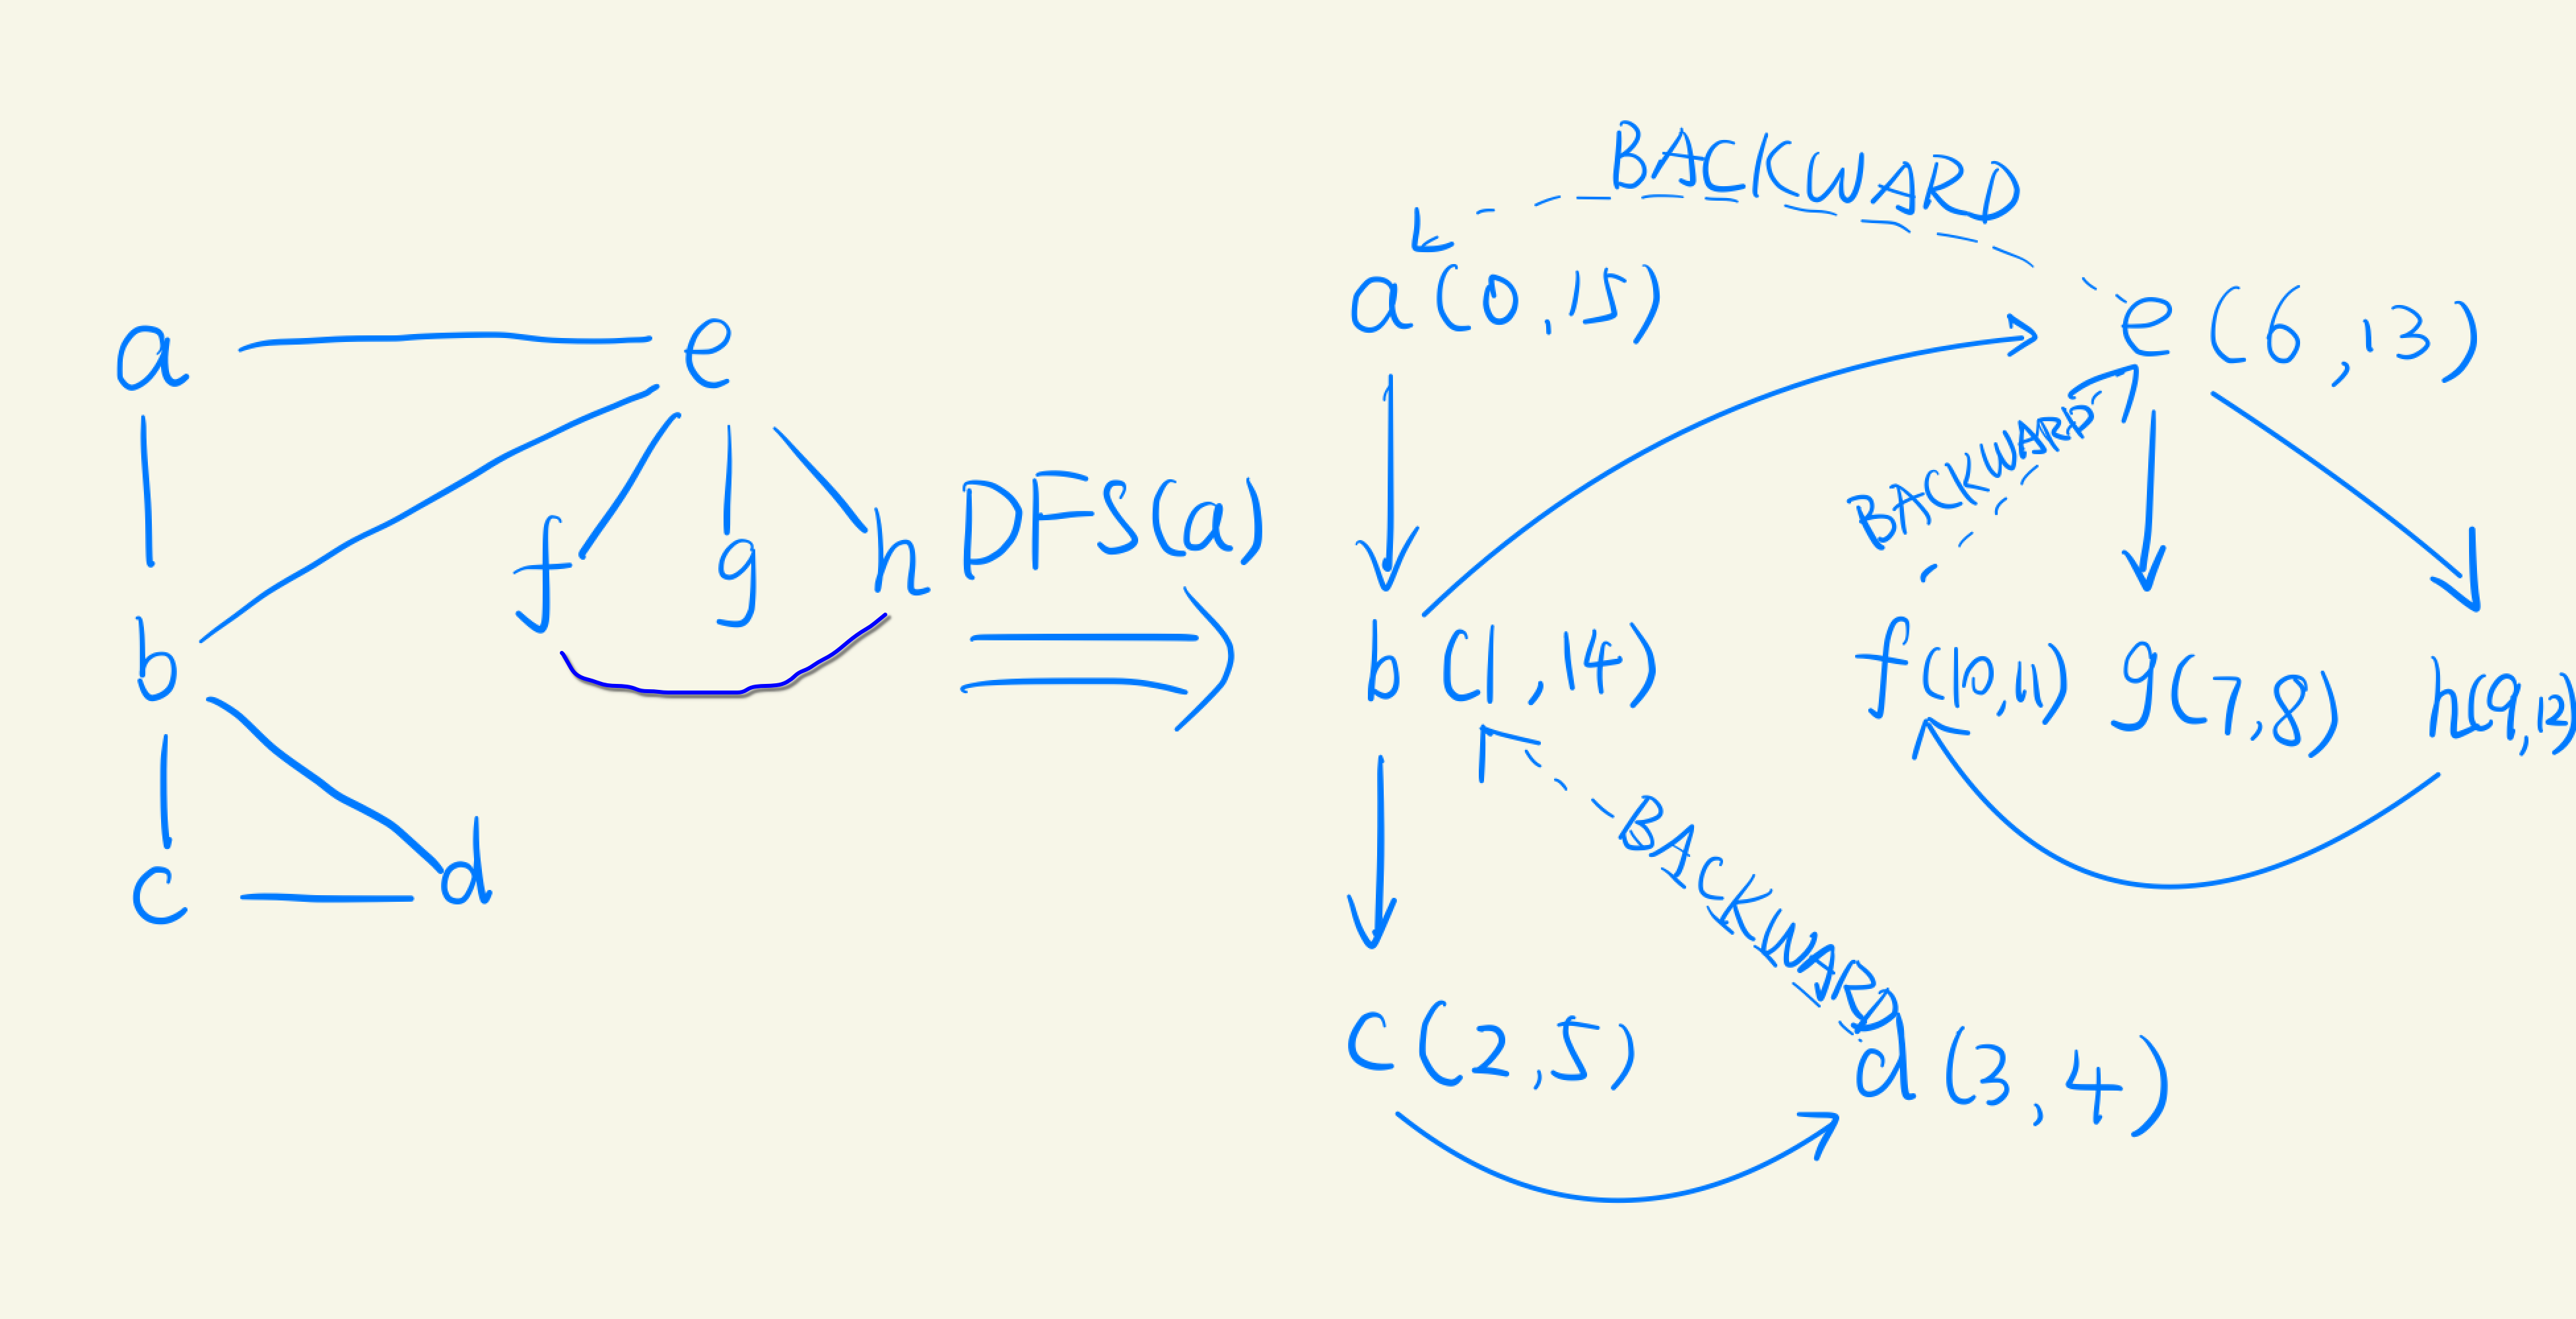 a
e
b
f
g
h
c
d
DFS(a)
BACKWARD
a(0,15)
e(6,13)
BACKWARD
b(1,14)
f(10,11)
g(7,8)
h(9,12)
BACKWARD
c(2,5)
d(3,4)